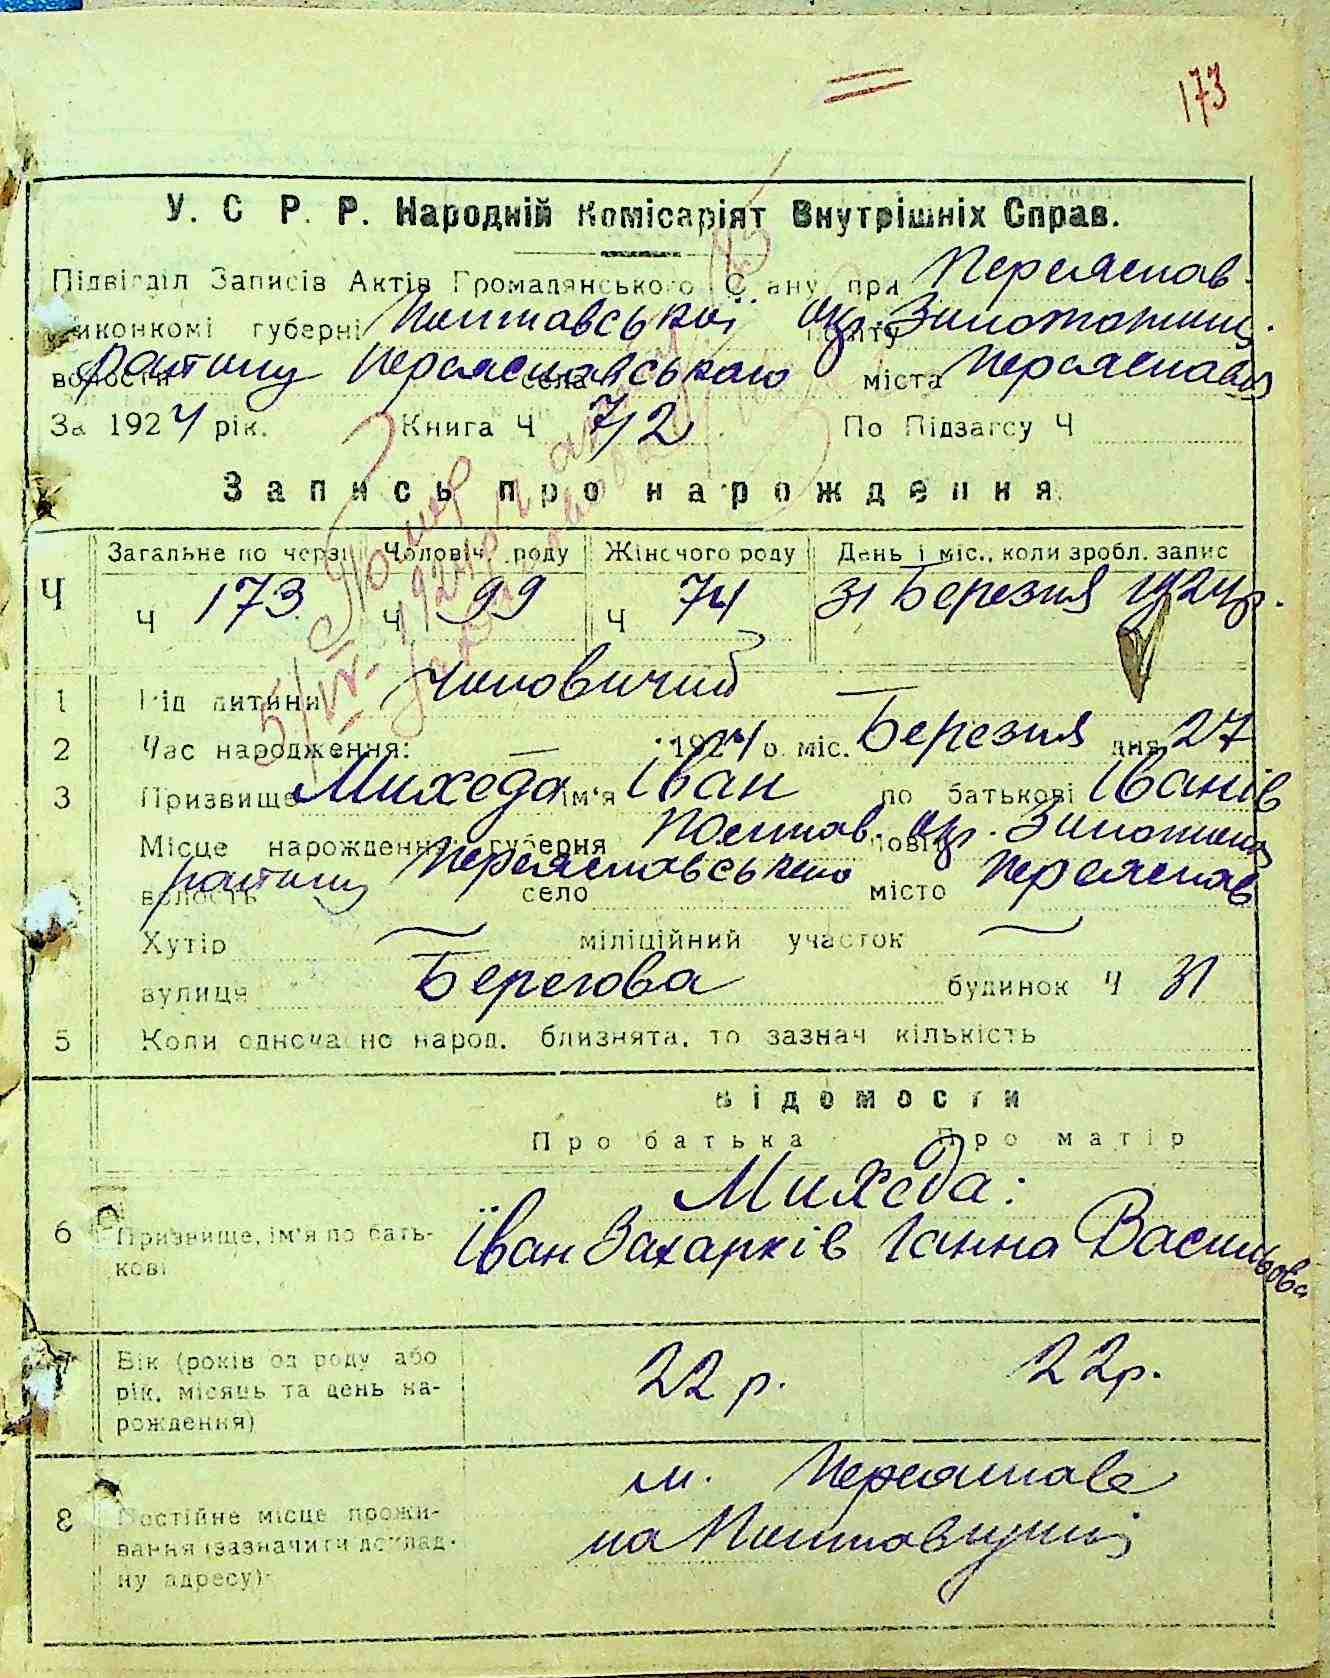 173
У. С Р. Р. Народній Комісаріят Внутрішніх Справ.
Підвідділ Записів Актів Громадянського Стану при Переяслав.
виконкомі губерні Полтавської окр. Золотоношщ. повіту
волости району Переяславського села міста Переяслава
За 1924 рік. Книга Ч 7/2 По Підзагсу Ч
Запись про народження
Ч Загальне по черзі Чоловіч. роду Жіночого роду День і міс., коли зробл. запис
Ч 173 Ч 99 Ч 74 31 Березня 1924 р.
Помер
1 Рід дитини Чоловичий —
2 Час народження: — 1924 о. міс. Березня дня 27
3 Призвище Михеда ім'я Іван по батькові Іванів
Місце нарождення: губерня Полтав. окр. Золотонош повіт
волость району Переяславського село місто Переяслав
Хутір міліційний участок
вулиця Берегова будинок Ч 31
5 Коли одночасно народ. близнята, то зазнач кількість
Відомости
Про батька Про матір
Михеда:
6 Призвище, ім'я по бать-
кові Іван Захарків Ганна Васильова
7 Вік (років од роду або
рік, місяць та день на-
рождення) 22 р. 22 р.
8 Постійне місце прожи-
вання (зазначити доклад-
ну адресу): м. Переяслав
на Полтавщині